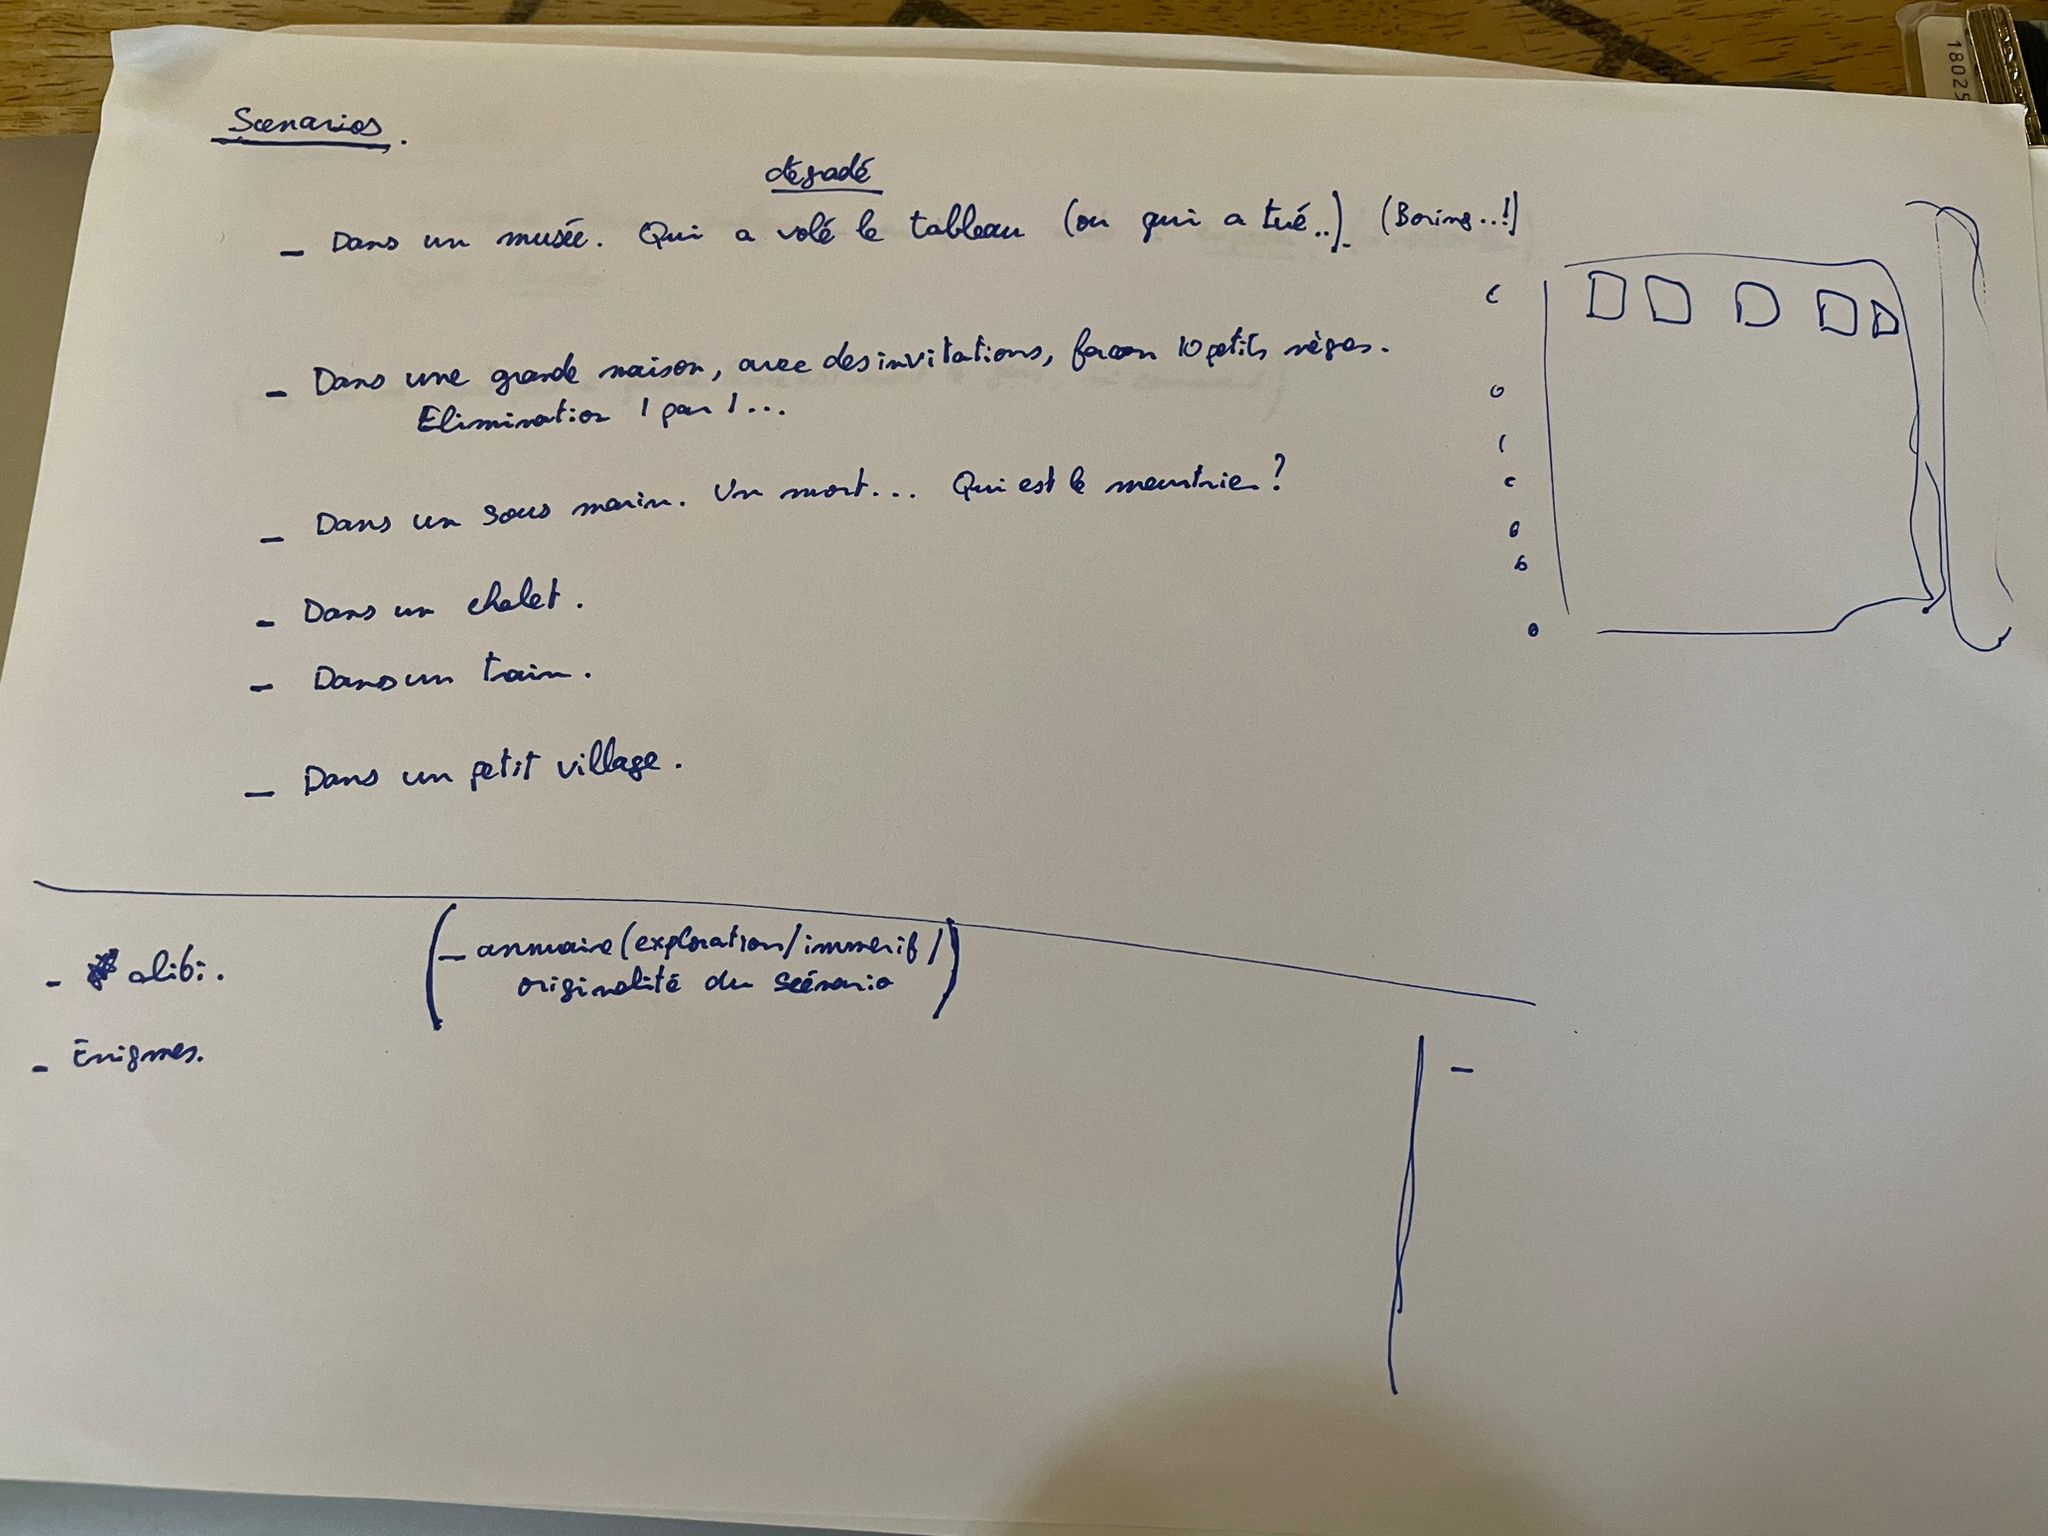 Scénarios.
dégradé
- Dans un musée. Qui a volé le tableau (ou qui a tué..). (Boring..!)
- Dans une grande maison, avec des invitations, façon 10 petits nègres.
Elimination 1 par 1...
- Dans un sous marin. Un mort... Qui est le meurtrier?
- Dans un chalet.
- Dans un train.
- Dans un petit village.
- alibi.
(- annuaire (exploration/immersif/
originalité du scénario)
- Énigmes.
-
1802